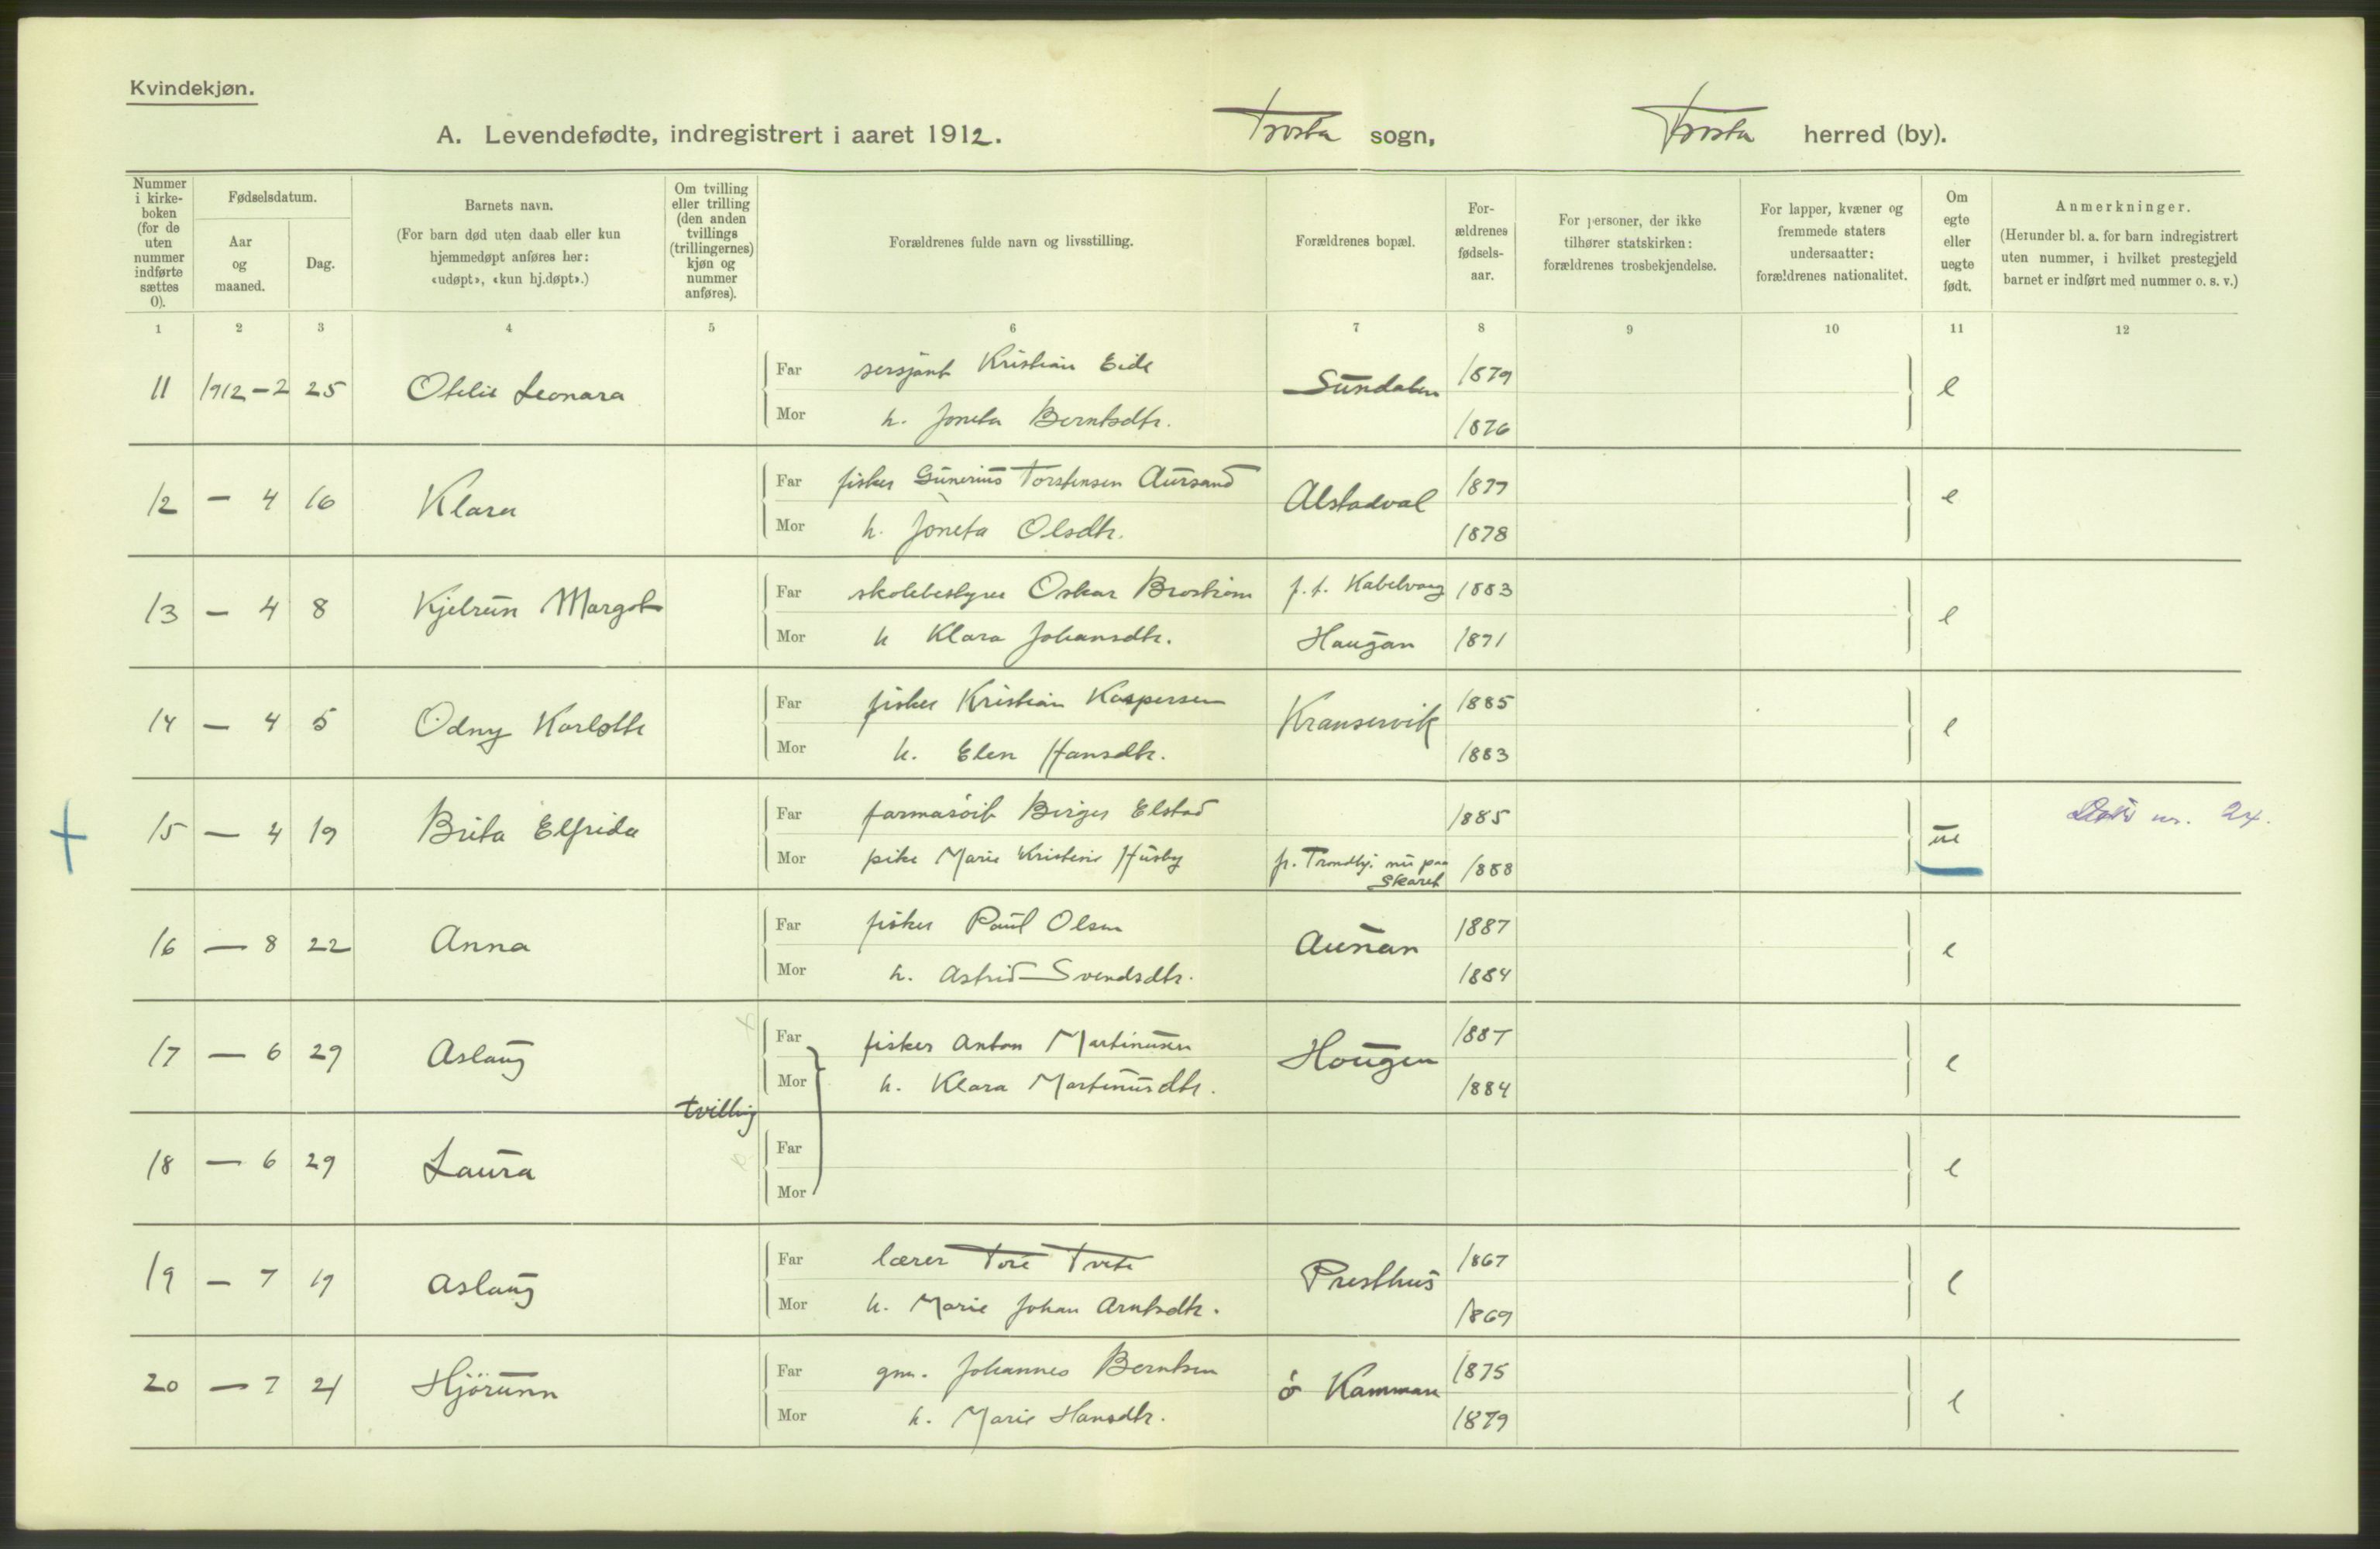 Kvindekjøn.
A. Levendefødte, indregistrert i aaret 1912. Frosta sogn, Frosta herred (by).
Nummer i kirke-boken (for de uten nummer indførte sættes 0).
Fødselsdatum.
Aar og maaned.
Dag.
Barnets navn.
(For barn død uten daab eller kun hjemmedøpt anføres her: «udøpt», «kun hj.døpt».)
Om tvilling eller trilling (den anden tvillings (trillingernes) kjøn og nummer anføres).
Forældrenes fulde navn og livsstilling.
Forældrenes bopæl.
For-ældrenes fødsels-aar.
For personer, der ikke tilhører statskirken: forældrenes trosbekjendelse.
For lapper, kvæner og fremmede staters undersaatter: forældrenes nationalitet.
Om egte eller uegte født.
Anmerkninger.
(Herunder bl. a. for barn indregistrert uten nummer, i hvilket prestegjeld barnet er indført med nummer o. s. v.)
1 2 3 4 5 6 7 8 9 10 11 12
11 1912 – 2 25 Otelie Leonara Far sersjant Kristian Eide Sundalen 1879 e
Mor h. Joneta Berntsdtr. 1876
12 – 4 16 Klara Far fisker Gunerius Torstensen Aursand Alstadval 1877 e
Mor h. Joneta Olsdtr. 1878
13 – 4 8 Kjelrun Margot Far skolebestyrer Oskar Brostrøm f. t. Kabelvaag 1883 e
Mor h Klara Johansdtr. Haugan 1871
14 – 4 5 Odny Karlotte Far fisker Kristian Kaspersen Kranservik 1885 e
Mor h. Elen Hansdtr. 1883
15 – 4 19 Brita Elfrida Far farmasöit Birger Elstad 1885 ue nr. 24.
Mor pike Marie Kristine Husby fr. Trondhj. nu paa Skaret 1888
16 – 8 22 Anna Far fisker Paul Olsen Aunan 1887 e
Mor h. Astrid Svendsdtr. 1884
17 – 6 29 Aslaug Far fisker Anton Martinusen Hougen 1887 e
Mor h. Klara Martinusdtr. 1884
tvilling
18 – 6 29 Laura Far e
Mor
19 – 7 19 Aslaug Far lærer Tore Tveite Presthus 1867 e
Mor h. Marie Johan Arntsdtr. 1869
20 – 7 21 Hjörunn Far gm. Johannes Berntsen ö Kamman 1875 e
Mor h. Marie Hansdtr. 1879